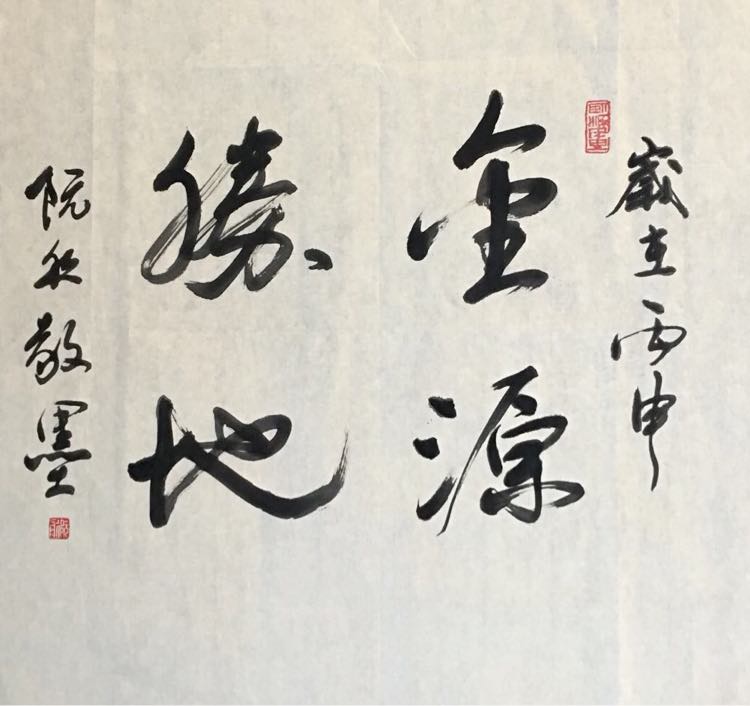 歲在丙申
金源
勝地
阮 敬墨